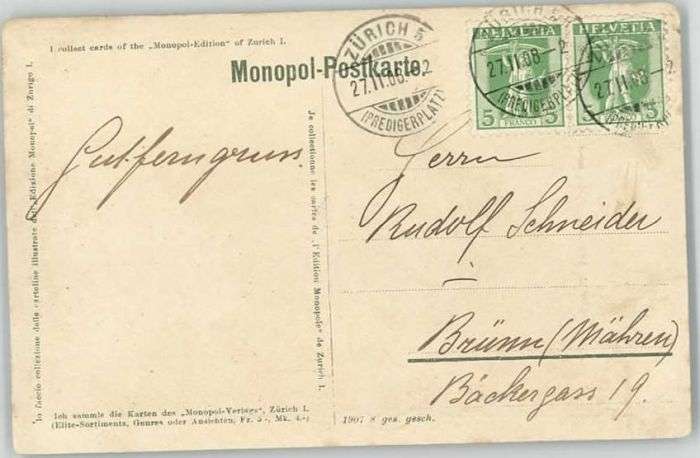 I collect cards of the „Monopol-Edition“ of Zurich I.
Monopol-Postkarte.
ZÜRICH 5
27.II.08.-2
(PREDIGERPLATZ)
HELVETIA
5 FRANCO 5
HELVETIA
5 5
27.II.08
(PREDIGERPLATZ)
27.II.08
Io faccio collezione delle cartoline illustrate dell' Edizione Monopol' di Zurigo I.
Gut ferngruss
Je collectionne les cartes de „l'Edition Monopole“ de Zurich I.
Herrn
Rudolf Schneider
in
Brünn (Mähren)
Bäckergass 19.
Ich sammle die Karten des „Monopol-Verlags“, Zürich I.
(Elite-Sortiments, Genres oder Ansichten, Fr. 5.-, Mk. 4.-)
1907/8 ges. gesch.